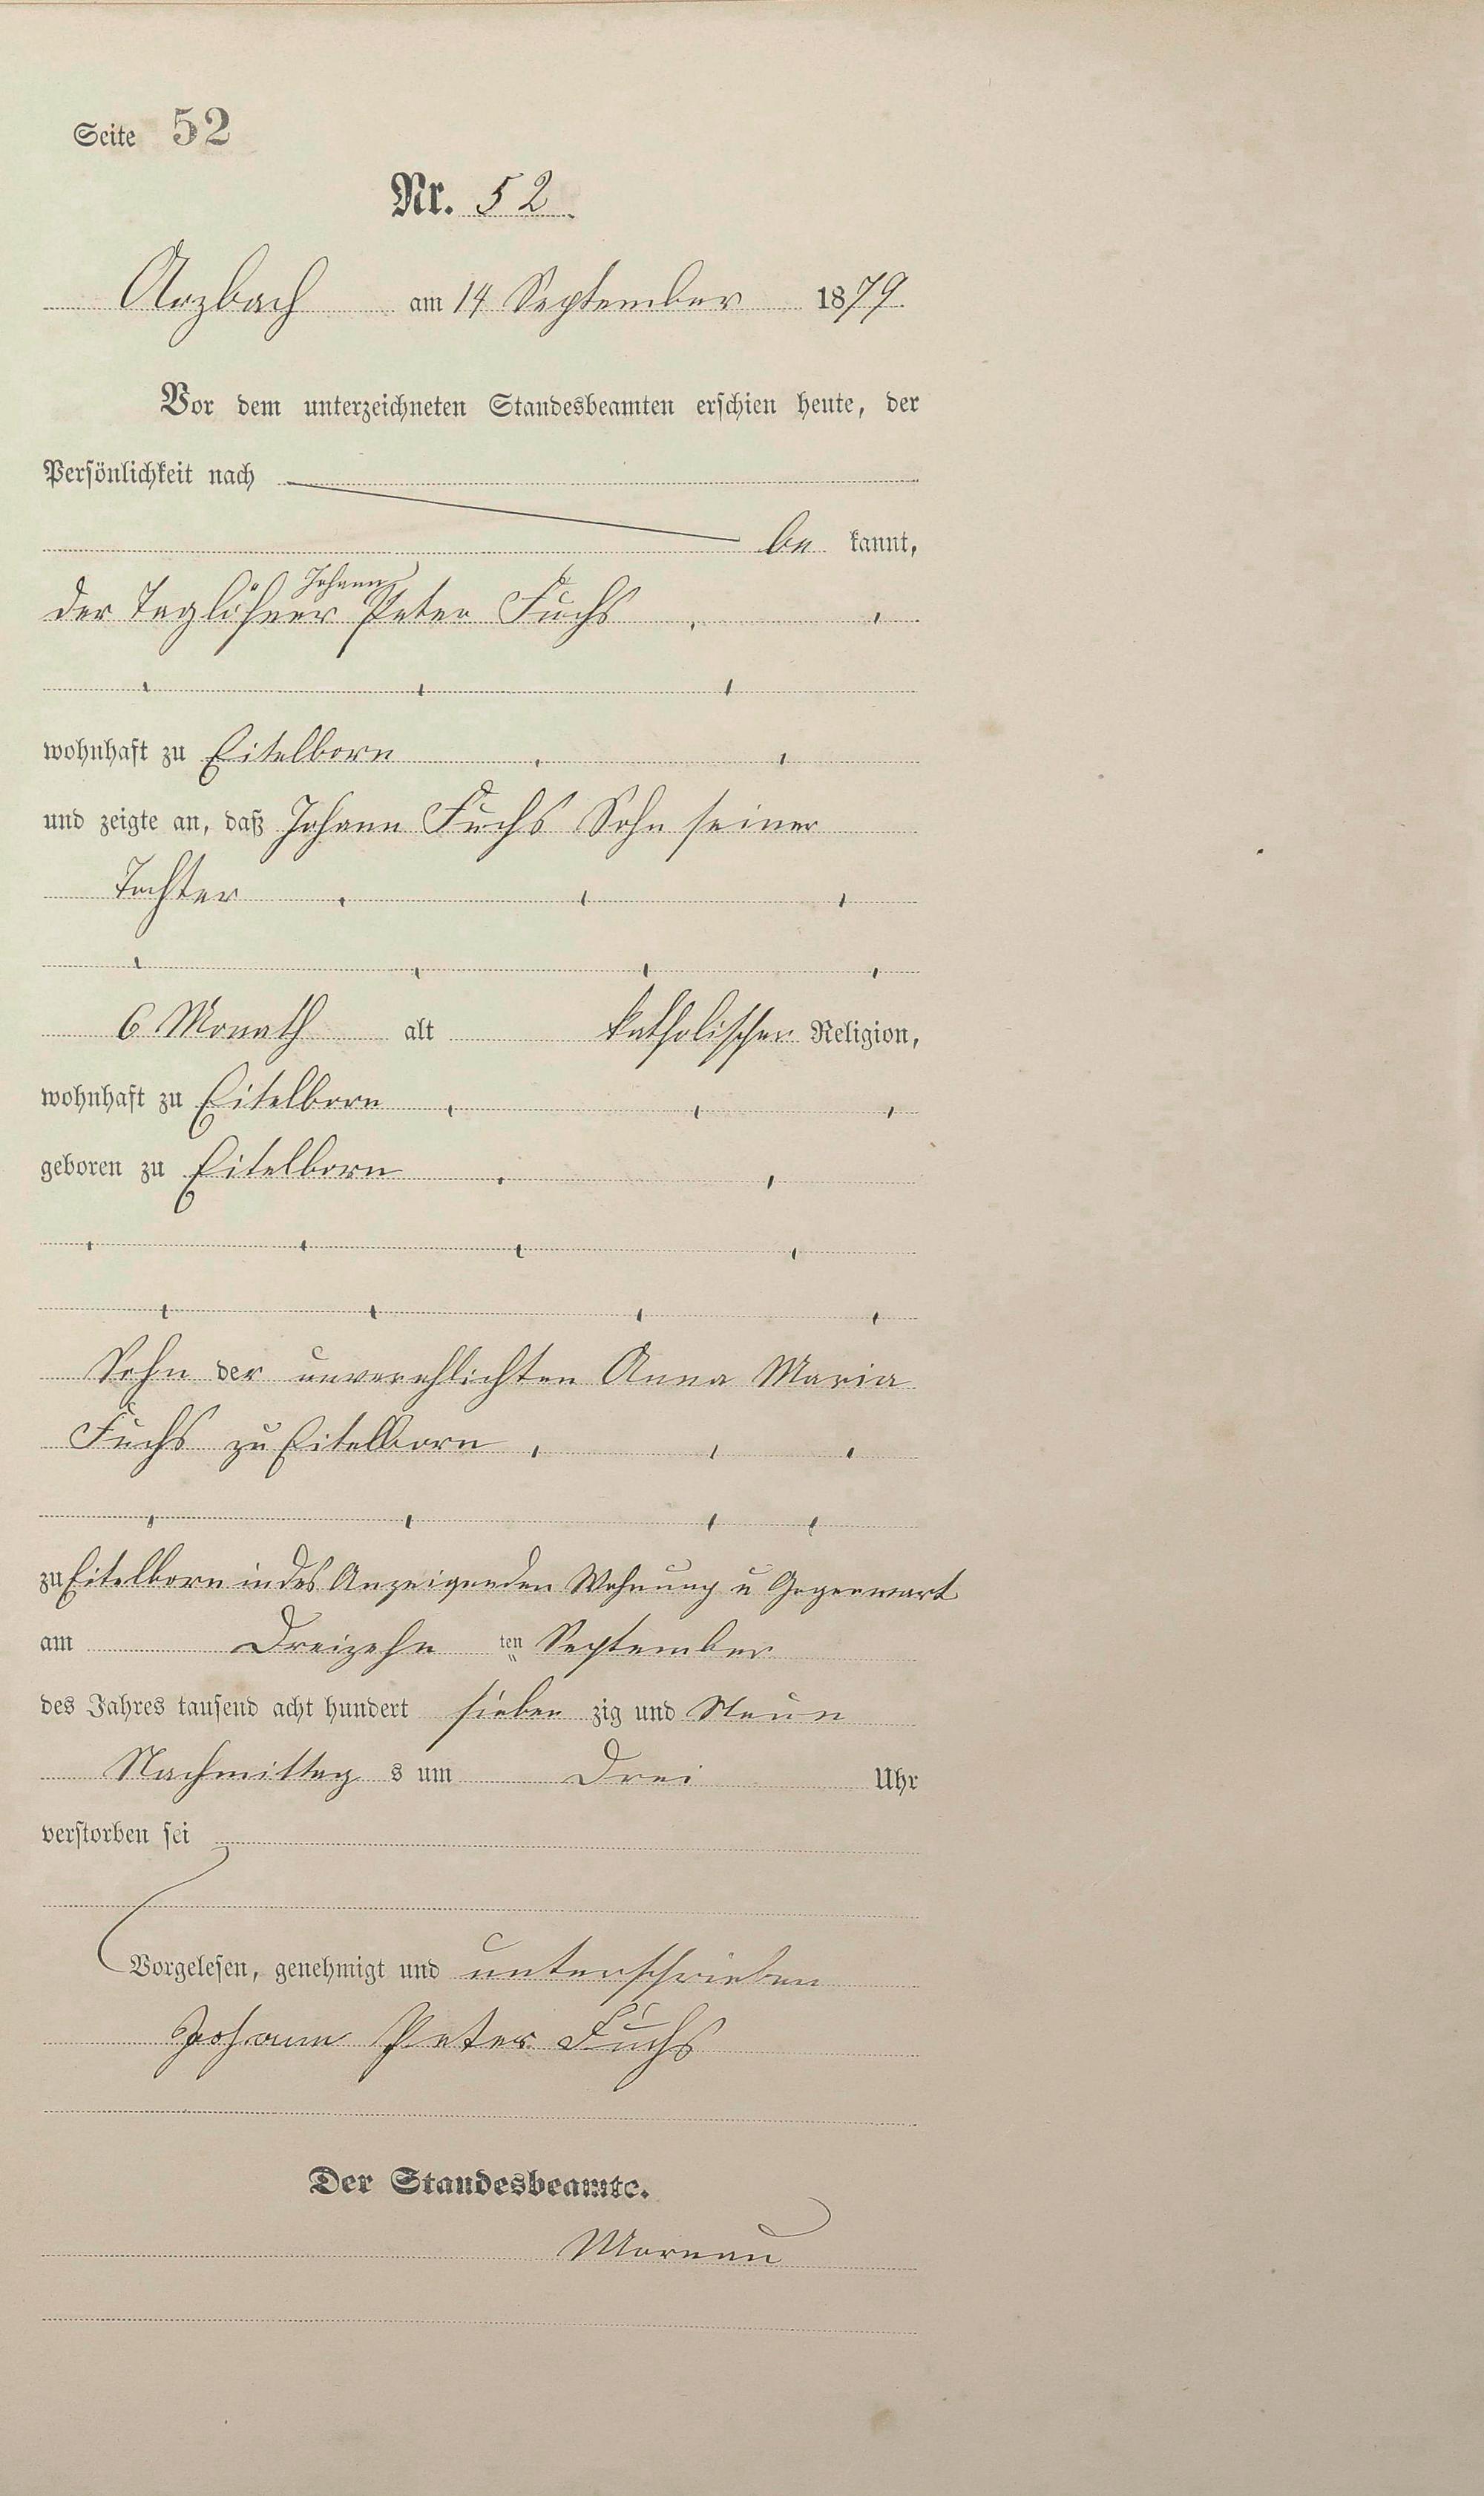 Seite 52
Nr. 52.
Arzbach am 14 September 1879.
Vor dem unterzeichneten Standesbeamten erschien heute, der
Persönlichkeit nach
be kannt,
Johann
der Taglöhner Peter Fuchs
wohnhaft zu Eitelborn
und zeigte an, daß Johann Fuchs Sohn seiner
Tochter
6 Monath alt katholischer Religion,
wohnhaft zu Eitelborn
geboren zu Eitelborn
Sohn der unverehlichten Anna Maria
Fuchs zu Eitelborn
zu Eitelborn in des Anzeigenden Wohnung u Gegenwart
am Dreizehn ten September
des Jahres tausend acht hundert sieben zig und Neun
Nachmittag s um Drei Uhr
verstorben sei
Vorgelesen, genehmigt und unterschrieben
Johann Peter Fuchs
Der Standesbeamte.